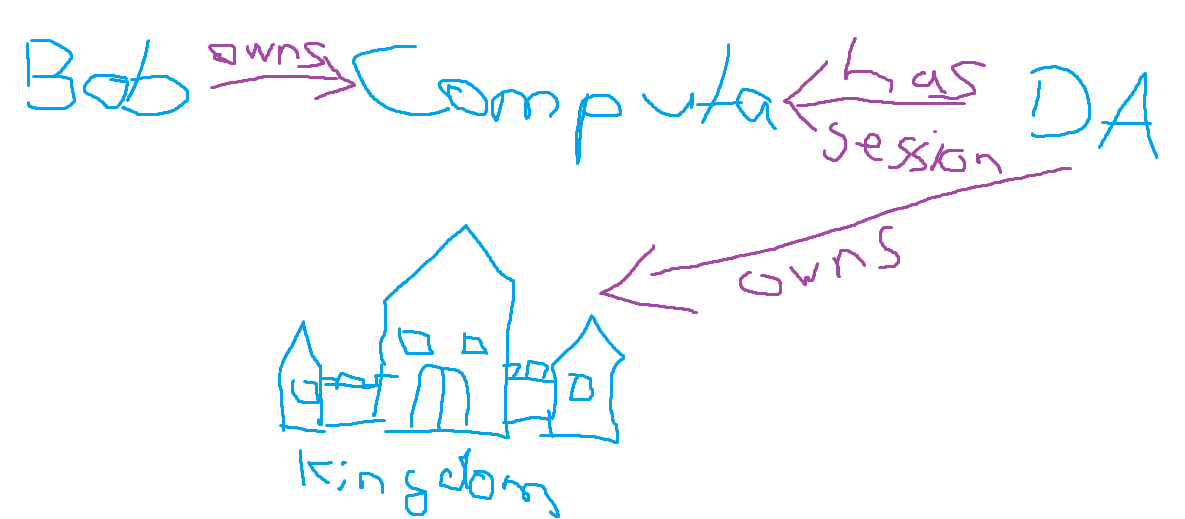 Bob owns Computa has DA
session
owns
Kingdom